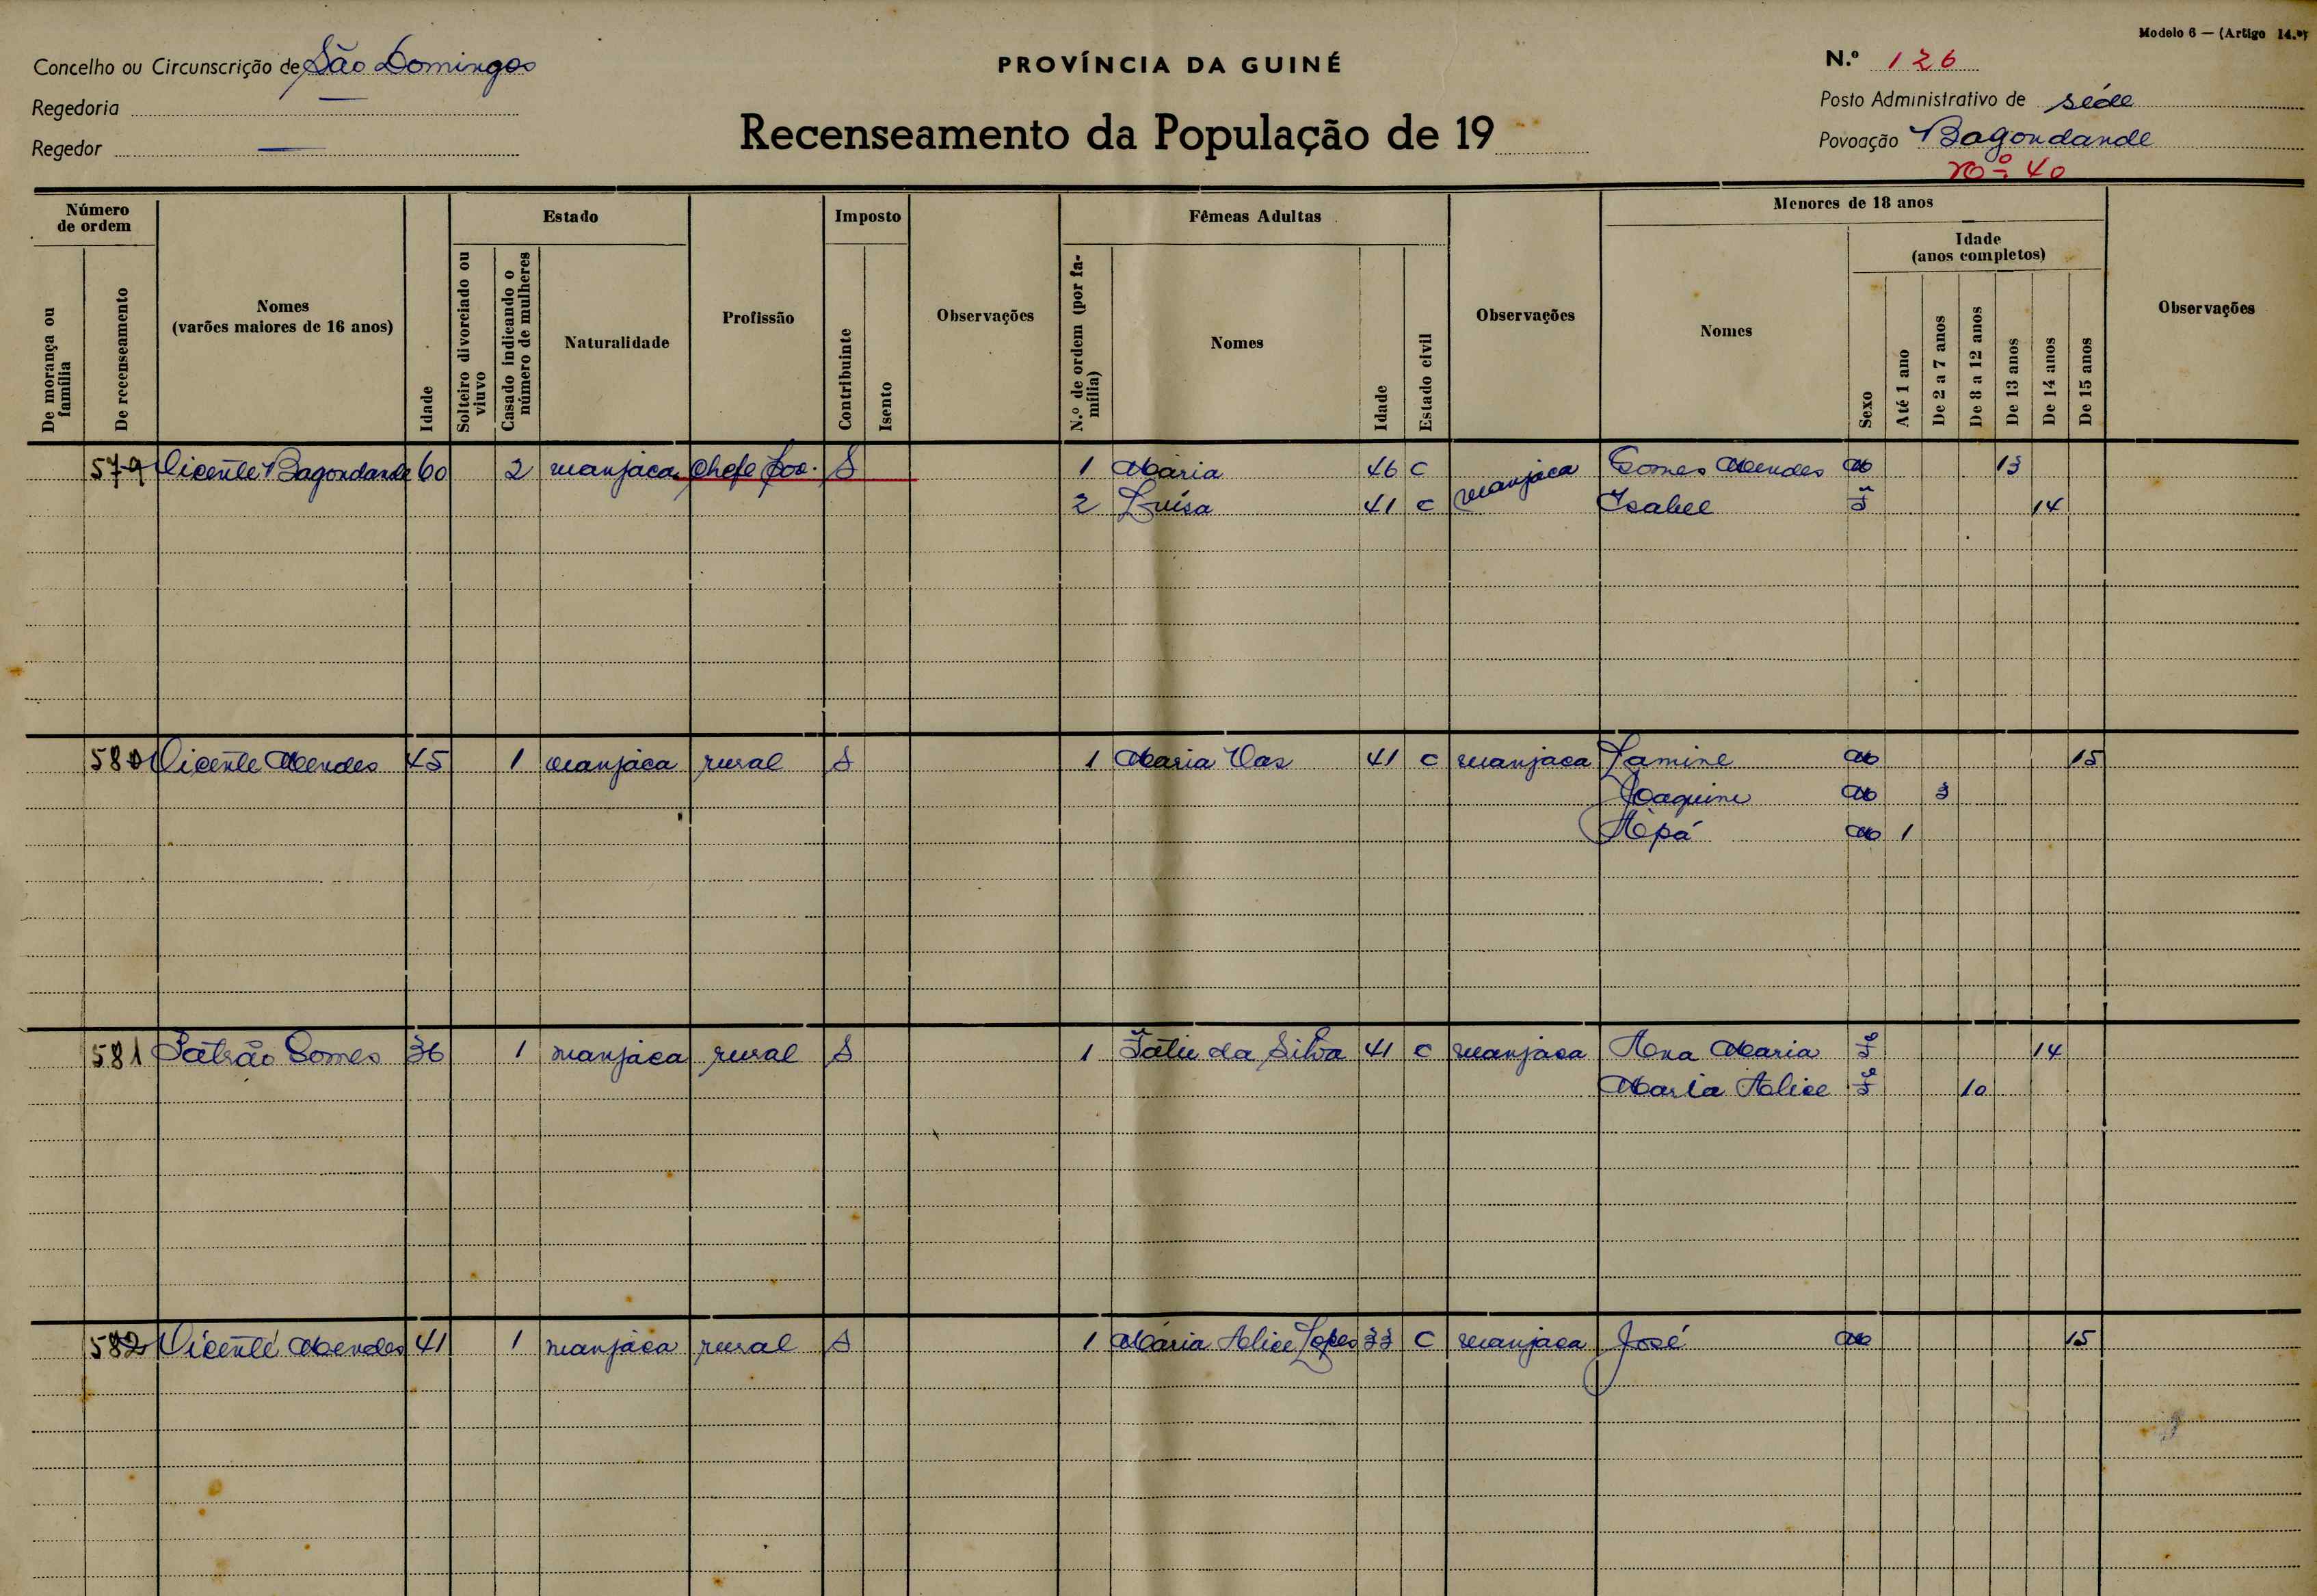 Modelo 6 — (Artigo 14.º)
Concelho ou Circunscrição de São Domingos
PROVÍNCIA DA GUINÉ
N.º 126
Regedoria —
Posto Administrativo de séde
Regedor —
Recenseamento da População de 19
Povoação Bagondande
nº 40
Número de ordem
De morança ou família
De recenseamento
Nomes
(varões maiores de 16 anos)
Idade
Estado
Solteiro divorciado ou viuvo
Casado indicando o número de mulheres
Naturalidade
Profissão
Imposto
Contribuinte
Isento
Observações
Fêmeas Adultas
N.º de ordem (por família)
Nomes
Idade
Estado civil
Observações
Menores de 18 anos
Nomes
Idade
(anos completos)
Sexo
Até 1 ano
De 2 a 7 anos
De 8 a 12 anos
De 13 anos
De 14 anos
De 15 anos
Observações
579 Vicente Bagondande 60 2 manjaca Chefe Pov. S 1 Maria 46 C manjaca Gomes Mendes M 13
2 Luísa 41 C Isabel F 14
580 Vicente Mendes 45 1 manjaca rural S 1 Maria Vas 41 C manjaca Lamine M 15
Joaquim M 3
Apá M 1
581 Patrão Gomes 36 1 manjaca rural S 1 da Silva 41 C manjaca Ana Maria F 14
Maria Alice F 10
582 Vicente Mendes 41 1 manjaca rural S 1 Maria Alice Lopes 33 C manjaca José M 15